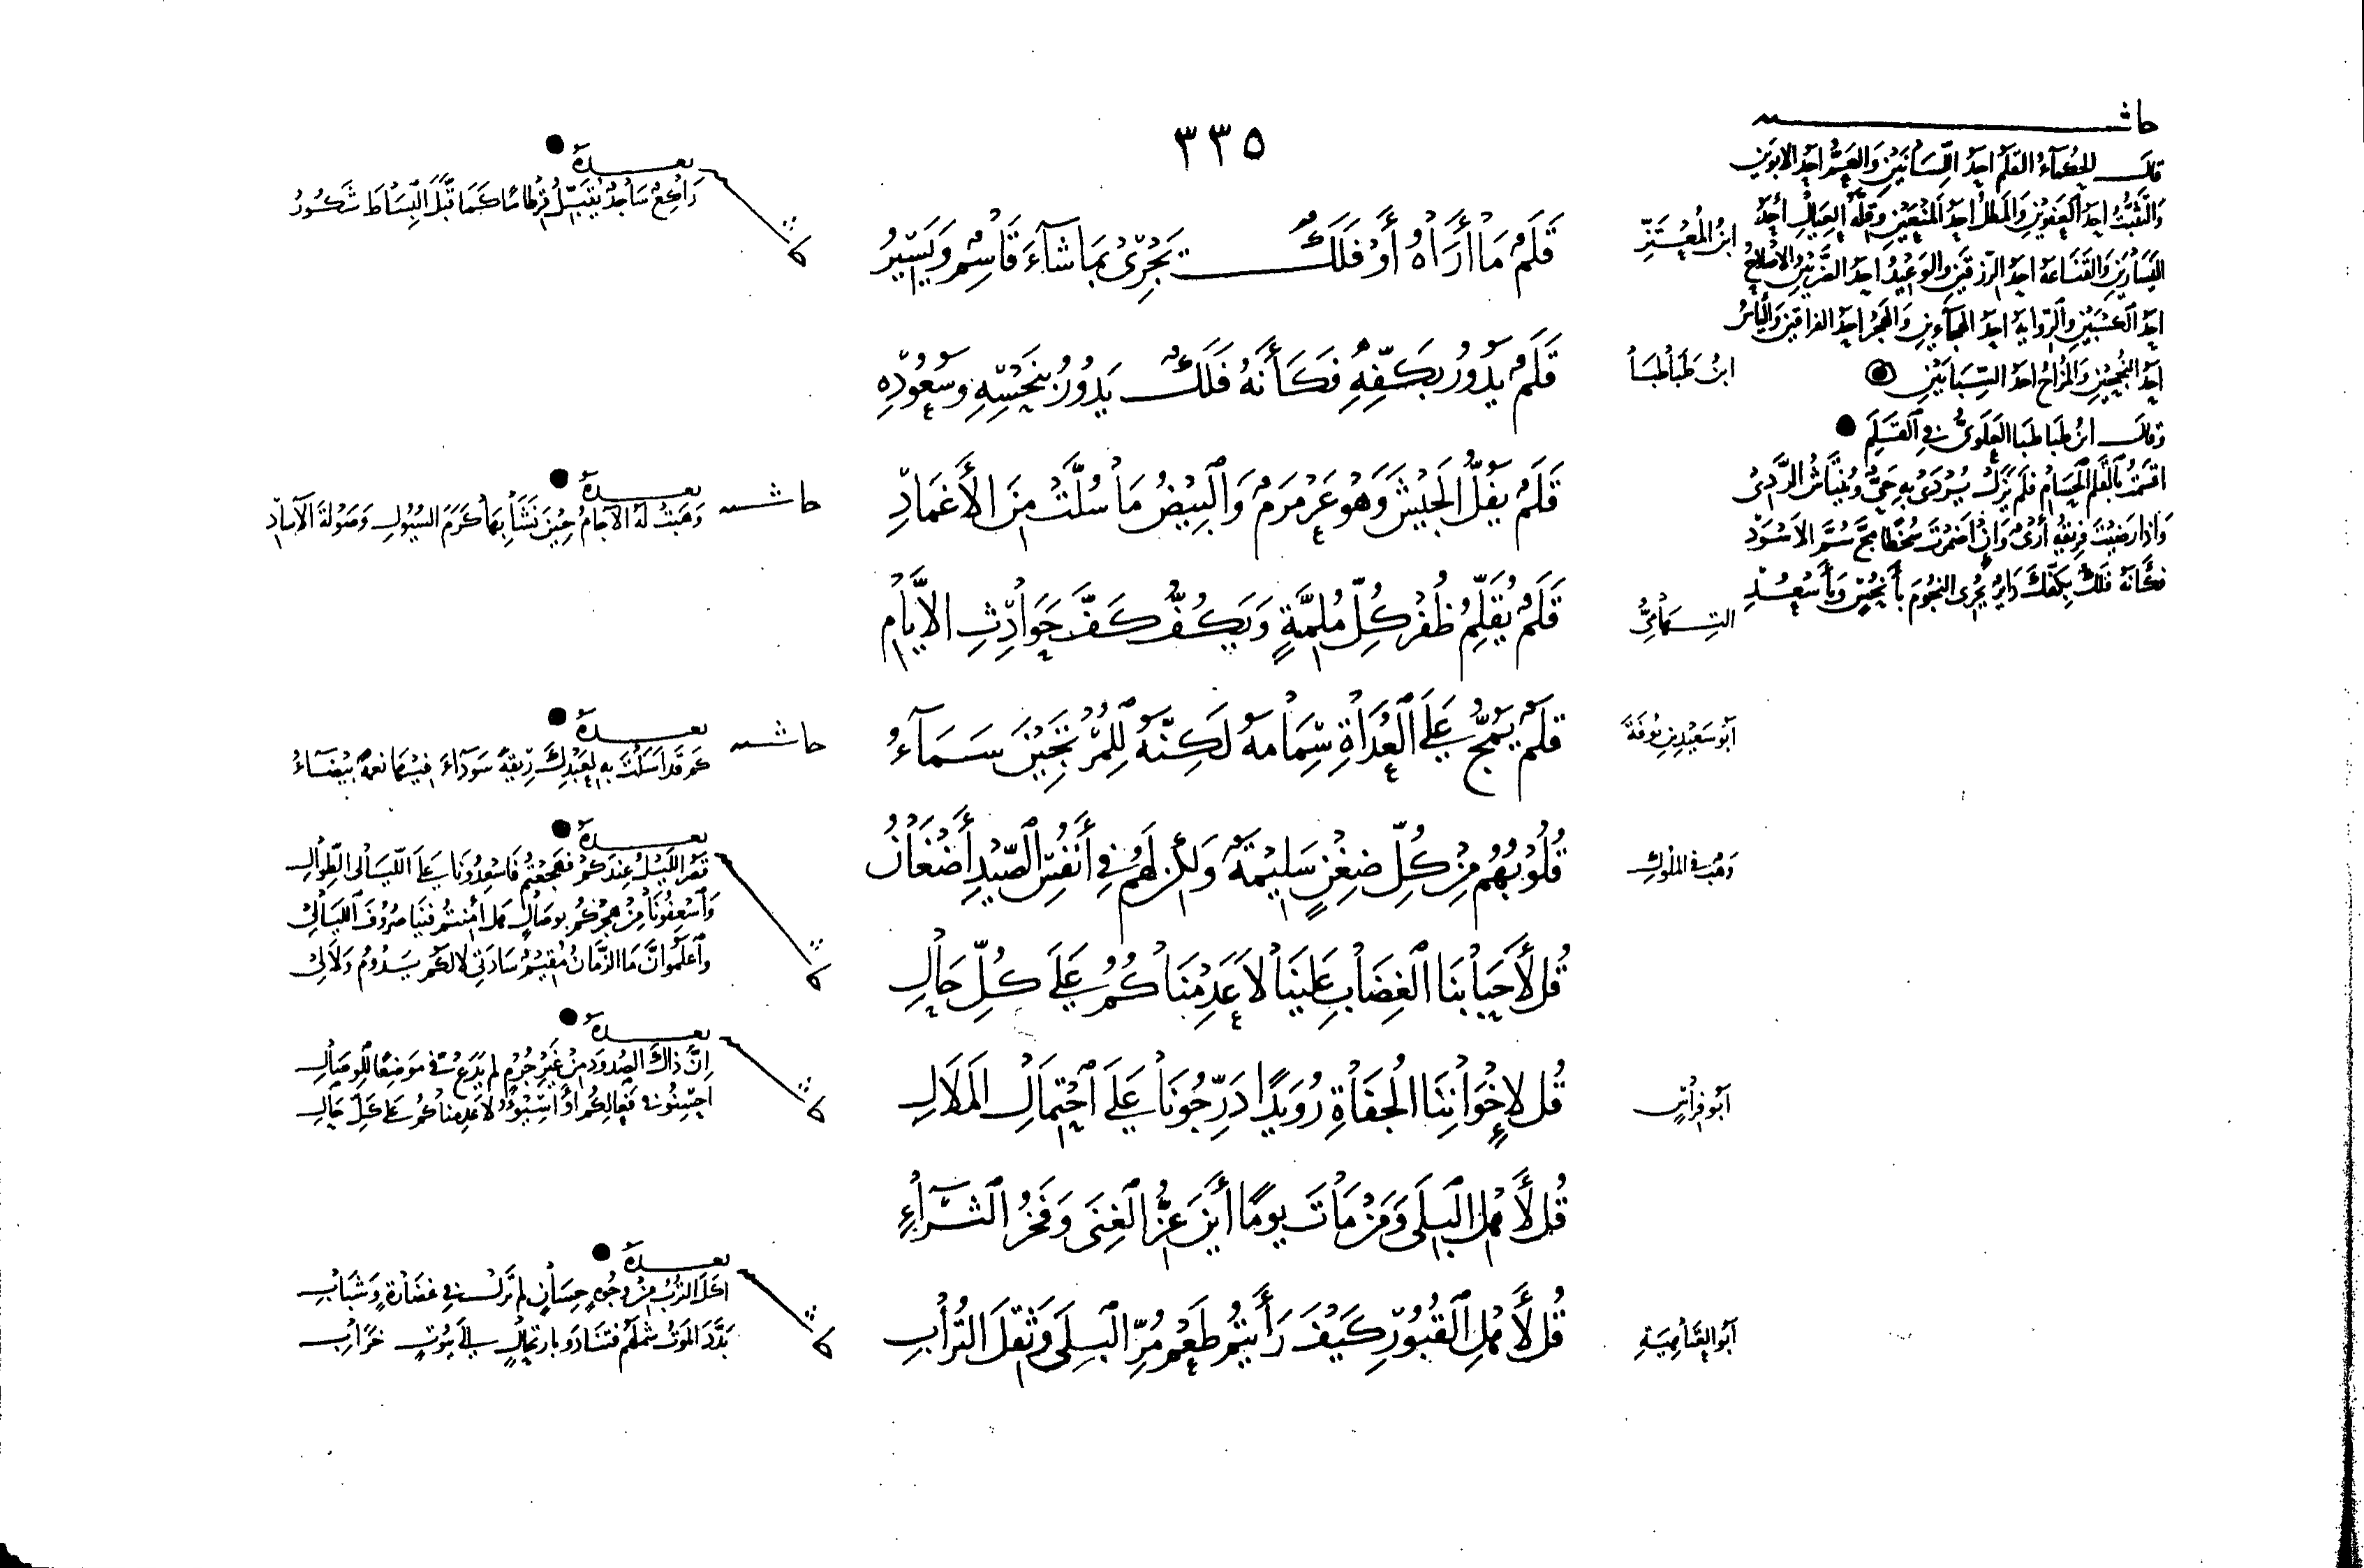 ٣٣٥
حاشية
قالت الحكماء القلم احد اللسانين والعم احد الابوين
والتثبت احد العفوين والمطل احد المنعين وقلة العيال احد
اليسارين والقناعة احد الرزقين والوعيد احد الضربين والاصلاح
احد الكسبين والرواية احد الهجاءين والهجر احد الفراقين واليأس
احد النجحين والمزاح احد السبابين
وقال ابن طباطبا العلوي في القلم
اقسمت بالقلم الحسام فلم يزل يردى به حي وينتاش الردى
واذا رضيت فريقه أرى وان اضمرت سخطا مج سم الاسود
فكأنه فلك بكفك داير يجرى النجوم بأنحس وبأسعد
ابن المعتز
قَلَمٌ مَا أَرَاهُ أَوْ فَلَكٌ يَجْرِي بِمَا شَآءَ قَاسِمٌ وَيَسِيرُ
بعده
رَاكِعٌ سَاجِدٌ يُقَبِّلُ قِرْطَاسًا كَمَا قَبَّلَ البِسَاطَ شَكُورُ
ابن طباطبا
قَلَمٌ يَدُورُ بِكَفِّهِ فَكَأَنَّهُ فَلَكٌ يَدُورُ بِنَحْسِهِ وَسُعُودِهِ
قَلَمٌ يَفُلُّ الجَيْشَ وَهْوَ عَرَمْرَمٌ وَالْبِيْضُ مَا سُلَّتْ مِنَ الأَغْمَادِ
حاشية
بعده
وَهَبَتْ لَهُ الآجَامُ حِيْنَ نَشَأ بِهَا كَرَمَ السُيُولِ وَصَوْلَةَ الآسَادِ
قَلَمٌ يُقَلِّمُ ظُفْرَ كُلِّ مُلِمَّةٍ وَيَكُفُّ كَفَّ حَوَادِثِ الأَيَّامِ
أبو سعيد بن بوقة
قَلَمٌ يَمُجُّ عَلَى الْعُدَاةِ سِمَامَهُ لَكِنَّهُ لِلْمُرْتَجِيْنَ سَمَآءُ
حاشية
بعده
كم قد اسلت به لعبدك ريقة سوداء فيها نعمة بيضاء
وهب في الملوك
قُلُوبُهُمْ مِنْ كُلِّ ضِغْنٍ سَلِيمَةٌ وَلكِنْ لَهُمْ فِي أَنْفُسِ الصِّيْدِ أَضْغَانُ
قُل لأَحْبَابِنَا الْغِضَابِ عَلَيْنَا لاَ عَدِمْنَاكُمُ عَلَى كُلِّ حَالِ
بعده
قصر الليل عندكم فهجعتم فاسعدونا على الليالى الطوال
واسعفونا من هجركم بوصال هل امنتم فينا صروف الليالى
واعلموا ان ما الزمان مقيم سادتى لا لكم يدوم ولا لى
أبو فراس
قُل لإِخْوَانِنَا الجُفَاةِ رُوَيْدًا دَرِّجُونَا عَلَى احْتِمَالِ المَلاَلِ
بعده
ان ذاك الصدود من غير جرم لم يدع فى موضعا للوصال
احسنوا فى فعالكم أو اسيئوا لا عدمناكم على كل حال
قُل لأَهْلِ البِلَى وَمَنْ مَاتَ يَوْمًا أَيْنَ عِزُّ الْغِنَى وَفَخْرُ الثَّرَآءِ
أبو العتاهية
قُل لأَهْلِ القُبُورِ كَيْفَ رَأَيْتُمْ طَعْمَ مُرِّ الْبِلَى وَثِقَلَ التُّرَابِ
بعده
اكل الترب من وجوه حسان لم تزل فى غضارة وشباب
بدد الموت شملهم فتنادوا بارتحال الى بيوت خراب